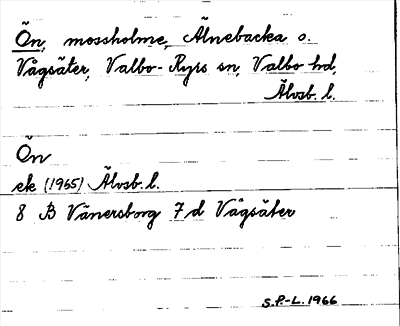 Ön, mossholme, Älnebacka o.
Vågsäter, Valbo-Ryrs sn, Valbo hd,
Älvsb. l.
Ön
ek (1965) Älvsb. l.
8 B Vänersborg 7d Vågsäter
S.P.-L. 1966